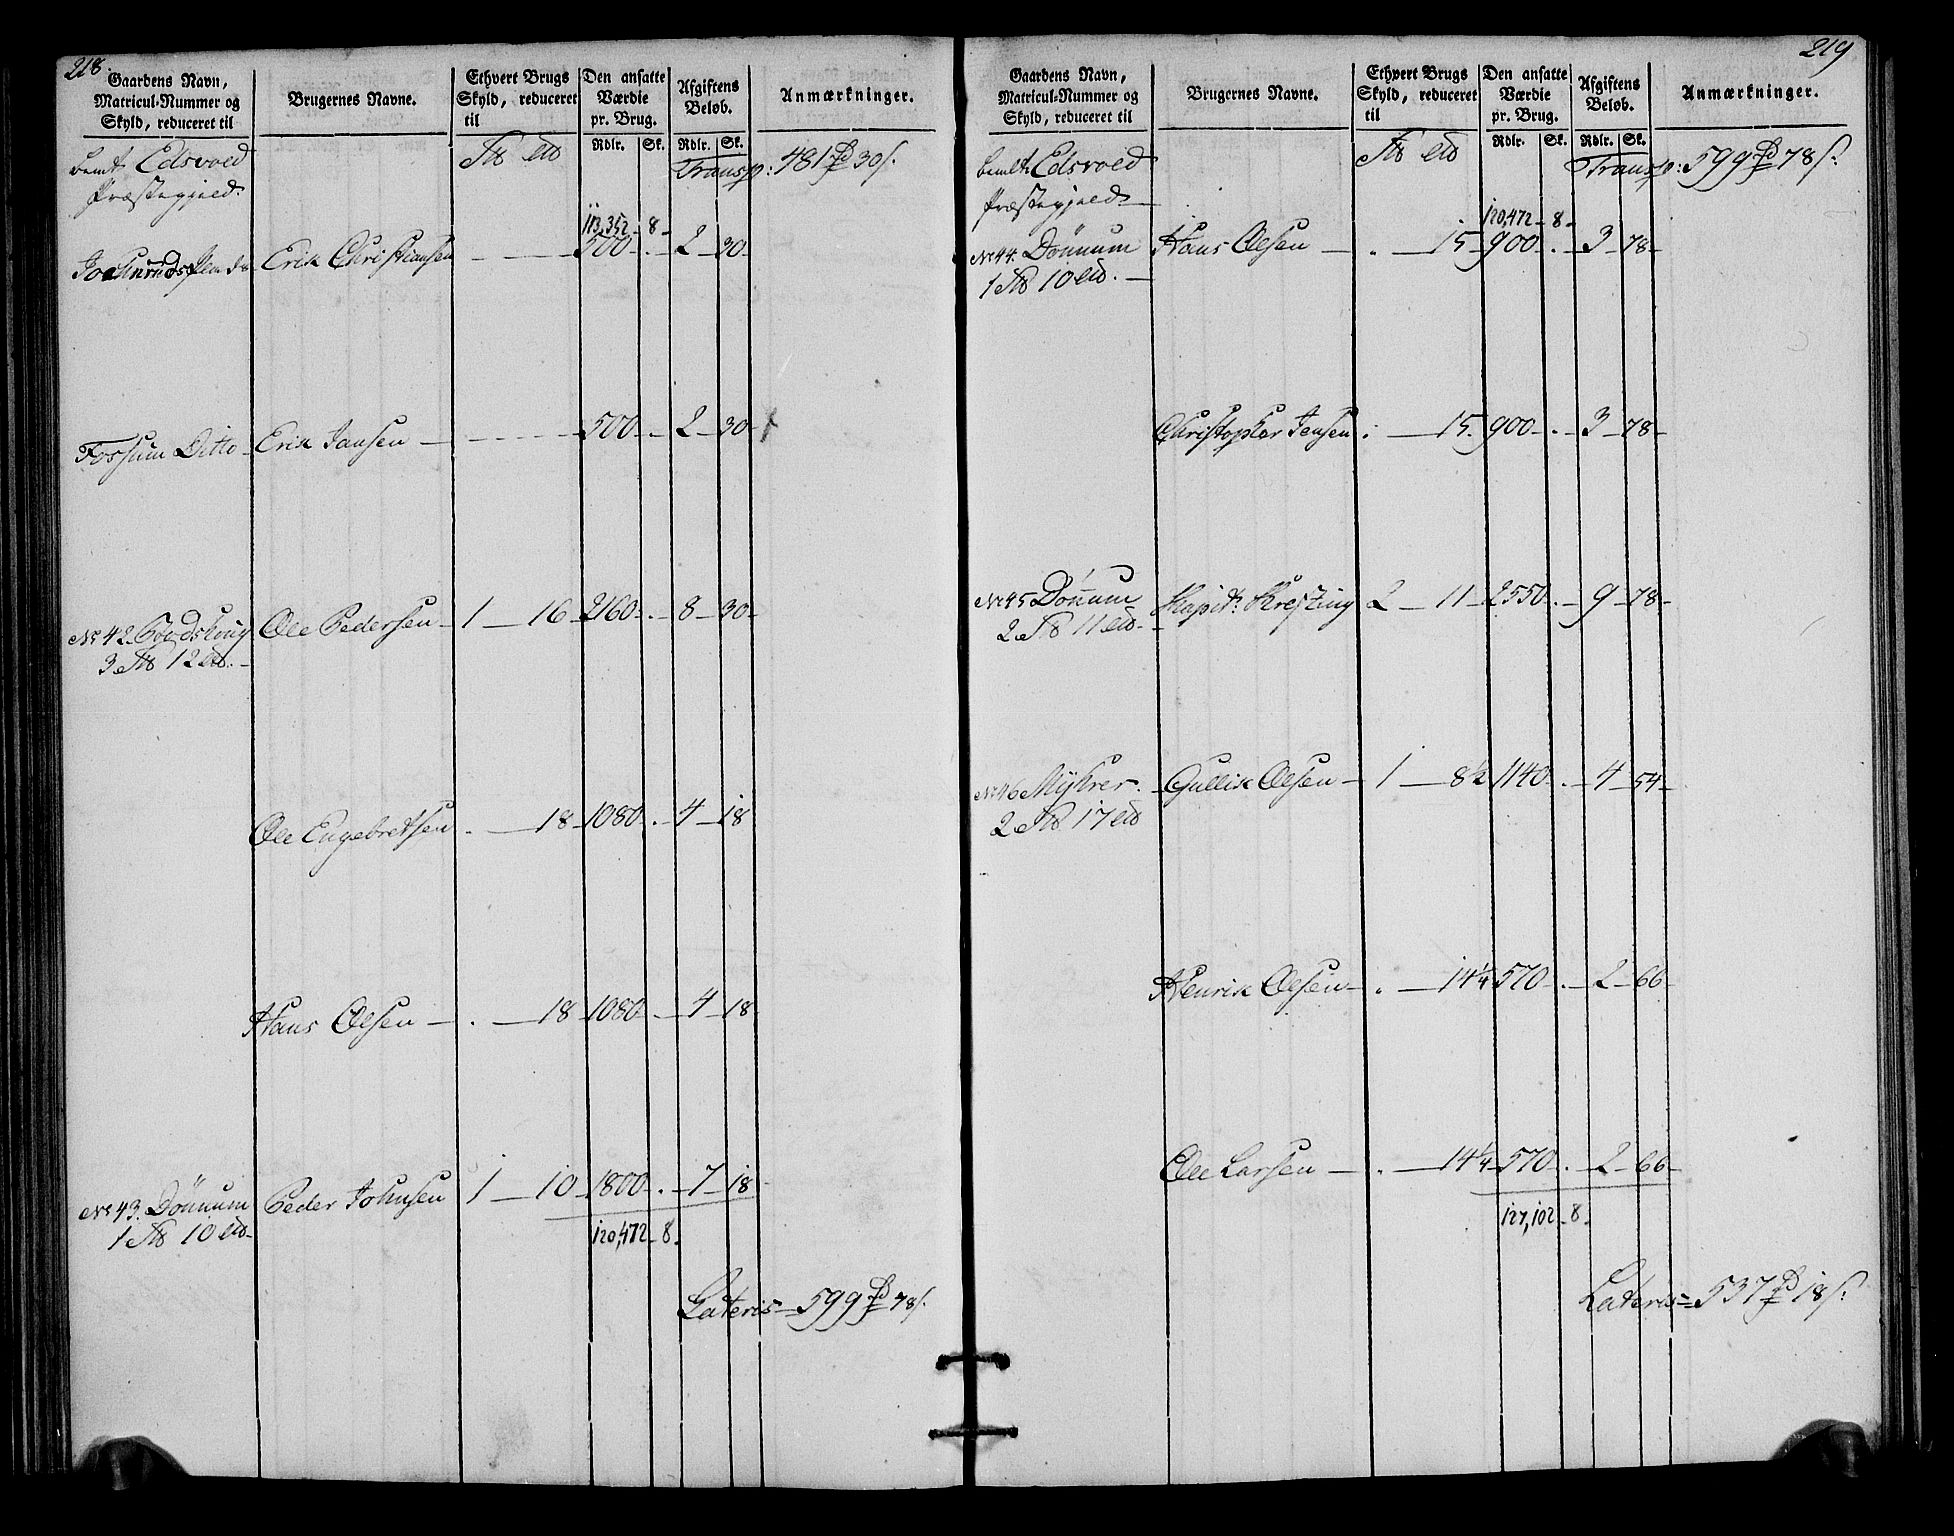 218.
Gaardens Navn,
Matricul-Nummer og
Skyld, reduceret til
Brugernes Navne.
Ethvert Brugs
Skyld, reduceret
til
Den ansatte
Værdie
pr. Brug.
Rdlr. Sk.
Afgiftens
Beløb.
Rdlr. Sk.
Anmærkninger.
Edsvold
Præstegjeld.
Transp: 481 30 s.
113,352 - 8 -
Erik Christiansen - - - 500 - . - 2 - 30 -
Fossum Ditto - Erik Jansen - - - 500 - . - 2 - 30 -
No 42. Ole Pedersen - 1 - 16 - 2160 - . - 8 - 30 -
3 12
Ole Engebretsen . - 18 - 1080 - . - 4 - 18
Hans Olsen - . - 18 - 1080 - . - 4 - 18 -
No 43. Dønnum Peder Johnsen 1 - 10 - 1800 - . - 7 - 18 -
1 10
120,472 - 8 -
Lateris - 599 78 s.
219
Gaardens Navn,
Matricul-Nummer og
Skyld, reduceret til
Brugernes Navne.
Ethvert Brugs
Skyld, reduceret
til
Den ansatte
Værdie
pr. Brug.
Rdlr. Sk.
Afgiftens
Beløb.
Rdlr. Sk.
Anmærkninger.
Edsvold
Præstegjeld -
Transp: 599 78 s.
120,472 - 8 -
No 44. Dønnum Hans Olsen - . - 15 - 900 - . - 3 - 78 -
1 10
Christopher Jensen . - 15 - 900 - . - 3 - 78 -
No 45 Dønnum 2 - 11 - 2550 - . - 9 - 78 -
2 11
No 46 Myhrer - Gullik Olsen - 1 - 8½ 1140 - . - 4 - 54 -
2 17
Henrik Olsen - . - 14¼ 570 - . - 2 - 66 -
Ole Larsen - . - 14¼ 570 - . - 2 - 66 -
127,102 - 8 -
Lateris - 537 18 s.